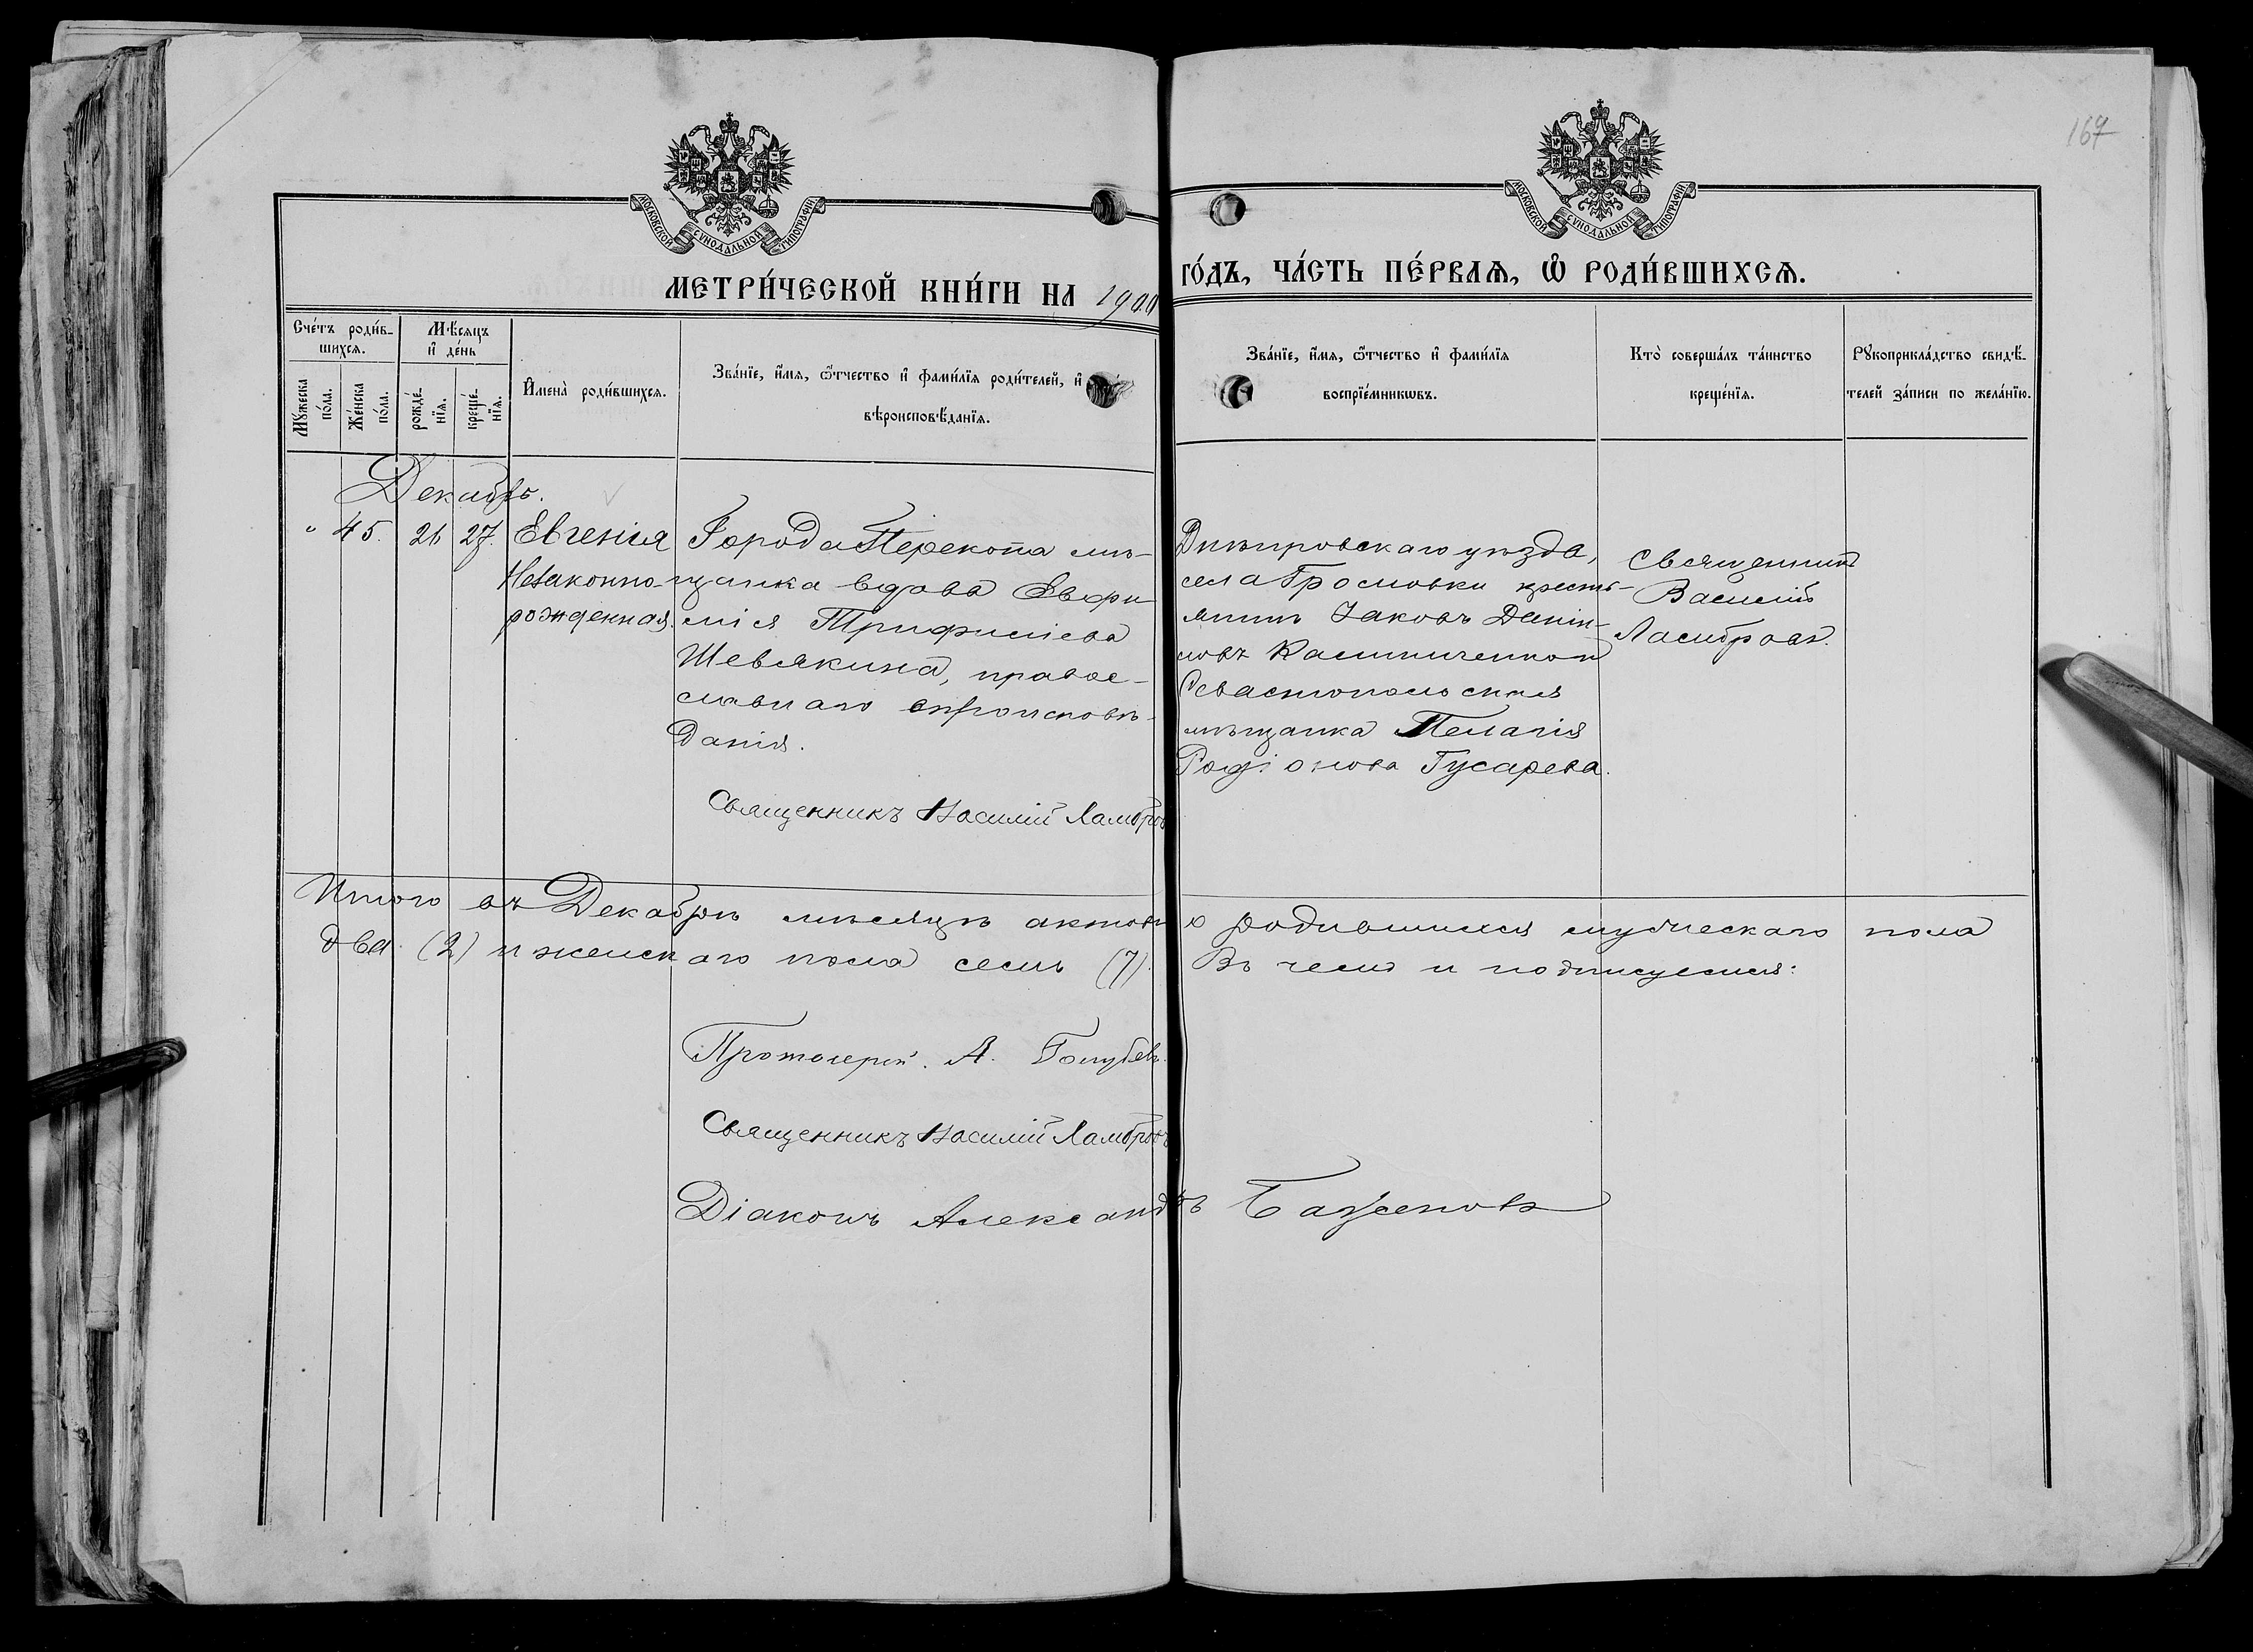 167
МОСКОВСКОЙ СУНОДАЛЬНОЙ ТИПОГРАФІИ
МОСКОВСКОЙ СУНОДАЛЬНОЙ ТИПОГРАФІИ
МЕТРИ́ЧЕСКОЙ КНИ́ГИ НА 1900
ГО́ДЪ, ЧА́СТЬ ПЕ́РВАѦ, Ѡ҆ РОДИ́ВШИХСѦ.
Сче́тъ роди́в-
шихсѧ.
Мѣ́сѧцъ
и҆ де́нь
Мꙋ́жеска
по́ла.
Же́нска
по́ла.
рожде́-
нїѧ.
креще́-
нїѧ.
И҆мена̀ роди́вшихсѧ.
Зва́нїе, и҆́мѧ, ѻ҆́тчество и҆ фами́лїѧ роди́телей, и҆
вѣроисповѣ́данїѧ.
Зва́нїе, и҆́мѧ, ѻ҆́тчество и҆ фами́лїѧ
воспрїе́мникѡвъ.
Кто̀ соверша́лъ та́инство
креще́нїѧ.
Рꙋкоприкла́дство свидѣ́-
телей за́писи по жела́нїю.
Декабрь.
" 45. 26 27. Евгенія
Незаконно-
рожденная.
Города Перекопа мѣ-
щанка вдова Евфи
мія Трифиліева
Шевлякина, правос-
лавнаго вѣроисповѣ-
данія.
Священникъ Василій Ламбровъ
Днѣпровскаго уѣзда,
села Громовки кресть-
янинъ Іаковъ Данiи-
ловъ Калиниченко и
Севастопольская
мѣщанка Пелагія
Родіонова Гусарева.
Священникъ
Василій
Ламбровъ.
Итого въ Декабрѣ мѣсяцѣ актовъ о родившихся мужескаго пола
два (2) и женскаго пола семь (7). Въ чемъ и подписуемся:
Протоіерей. А. Голубевъ.
Священникъ Василій Ламбровъ
Діаконъ Александръ Баженовъ